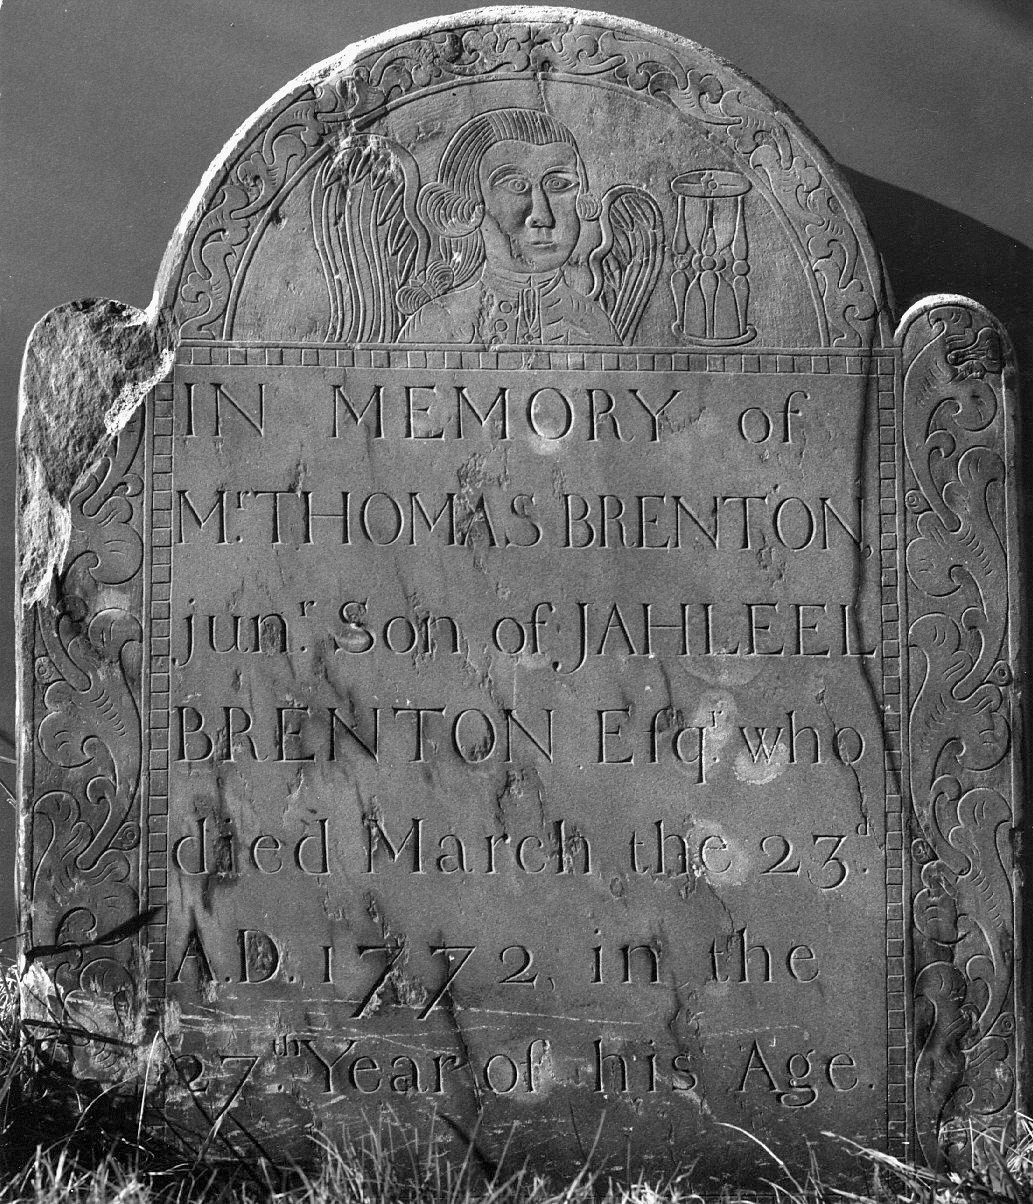 IN MEMORY of
Mʳ. THOMAS BRENTON
junʳ. Son of JAHLEEL
BRENTON Eſqʳ. who
died March the 23ᵈ.
A.D. 1772, in the
27ᵗʰ. Year of his Age.